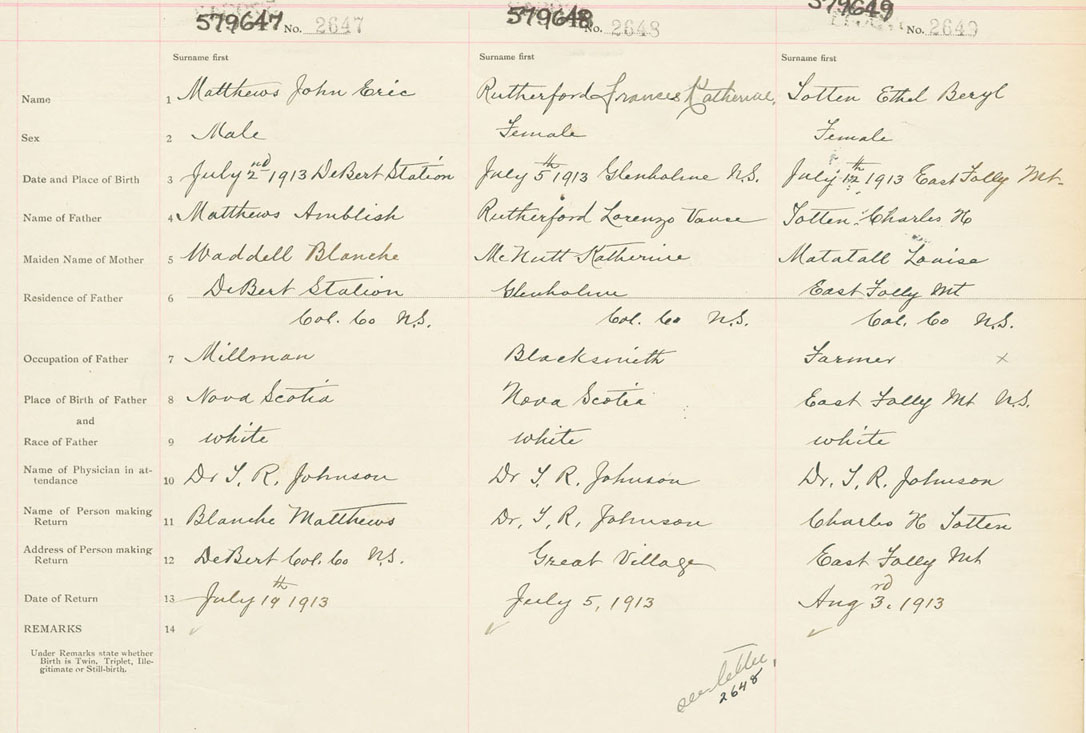 579647 No. 2647 579648 No. 2648 579649 No. 2649
Surname first Surname first Surname first
Name 1 Matthews John Eric Rutherford Frances Katherine, Totten Ethel Beryl
Sex 2 Male Female Female
Date and Place of Birth 3 July 2nd 1913 DeBert Station July 5th 1913 Glenholme N.S. July 12th 1913 East Folly Mt.
Name of Father 4 Matthews Amblish Rutherford Lorenzo Vance Totten Charles H
Maiden Name of Mother 5 Waddell Blanche McNutt Katherine Matatall Louise
Residence of Father 6 DeBert Station Glenholme East Folly Mt
Col. Co N.S. Col. Co N.S. Col. Co N.S.
Occupation of Father 7 Millman Blacksmith Farmer x
Place of Birth of Father 8 Nova Scotia Nova Scotia East Folly Mt N.S.
and
Race of Father 9 white white white
Name of Physician in at-
tendance 10 Dr T. R. Johnson Dr T. R. Johnson Dr. T. R. Johnson
Name of Person making
Return 11 Blanche Matthews Dr. T. R. Johnson Charles H Totten
Address of Person making
Return 12 DeBert Col. Co N.S. Great Village East Folly Mt
Date of Return 13 July 19th 1913 July 5, 1913 Aug 3rd, 1913
REMARKS 14
Under Remarks state whether
Birth is Twin, Triplet, Ille-
gitimate or Still-birth.
see letter
2648